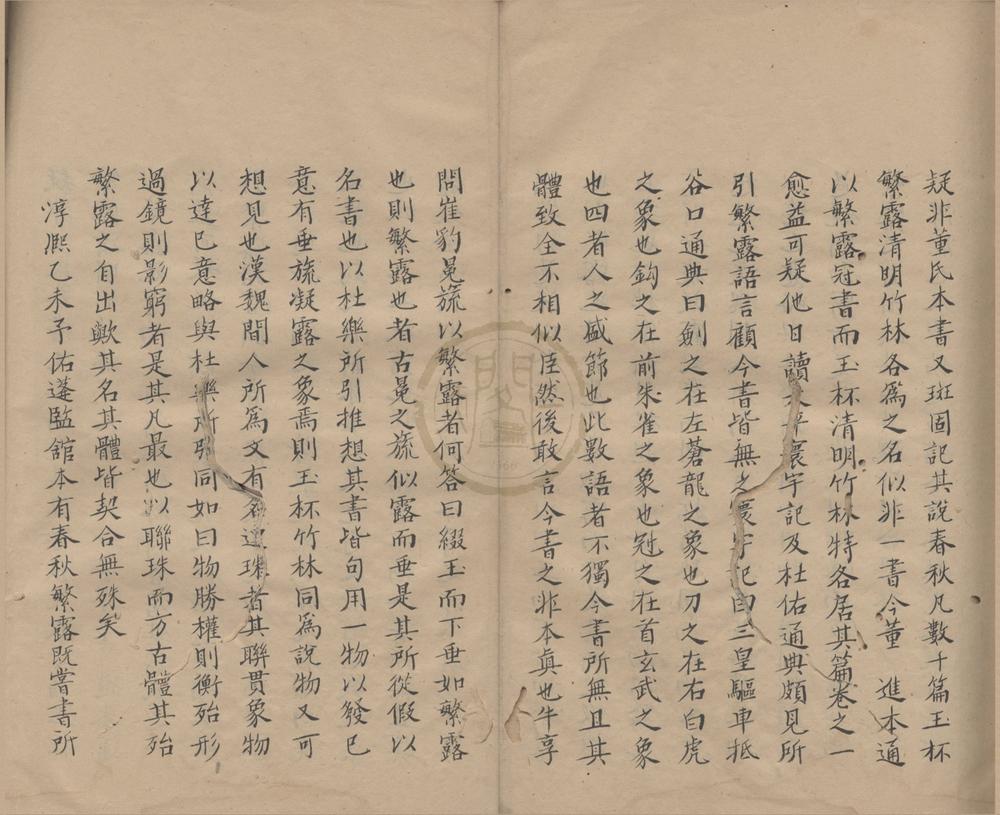 疑非董氏本書又班固記其說春秋凡數十篇玉杯
繁露清明竹林各為之名似非一書今董　進本通
以繁露冠書而玉杯清明竹林特各居其篇卷之一
愈益可疑他日讀太平寰宇記及杜佑通典頗見所
引繁露語言顧今書皆無之寰宇記曰三皇驅車抵
谷口通典曰劍之在左蒼龍之象也刀之在右白虎
之象也鈎之在前朱雀之象也冠之在首玄武之象
也四者人之盛節也此數語者不獨今書所無且其
體致全不相似臣然後敢言今書之非本真也牛享
問崔豹冕旒以繁露者何答曰綴玉而下垂如繁露
也則繁露也者古冕之旒似露而垂是其所從假以
名書也以杜樂所引推想其書皆句用一物以發已
意有垂旒凝露之象焉則玉杯竹林同為說物又可
想見也漢魏間人所為文有名連珠者其聯貫象物
以達已意略與杜樂所引同如曰物勝權則衡殆形
過鏡則影窮者是其凡最也以聯珠而方古體其殆
繁露之自出歟其名其體皆契合無殊矣
淳熙乙未予佐蓬監館本有春秋繁露既嘗書所